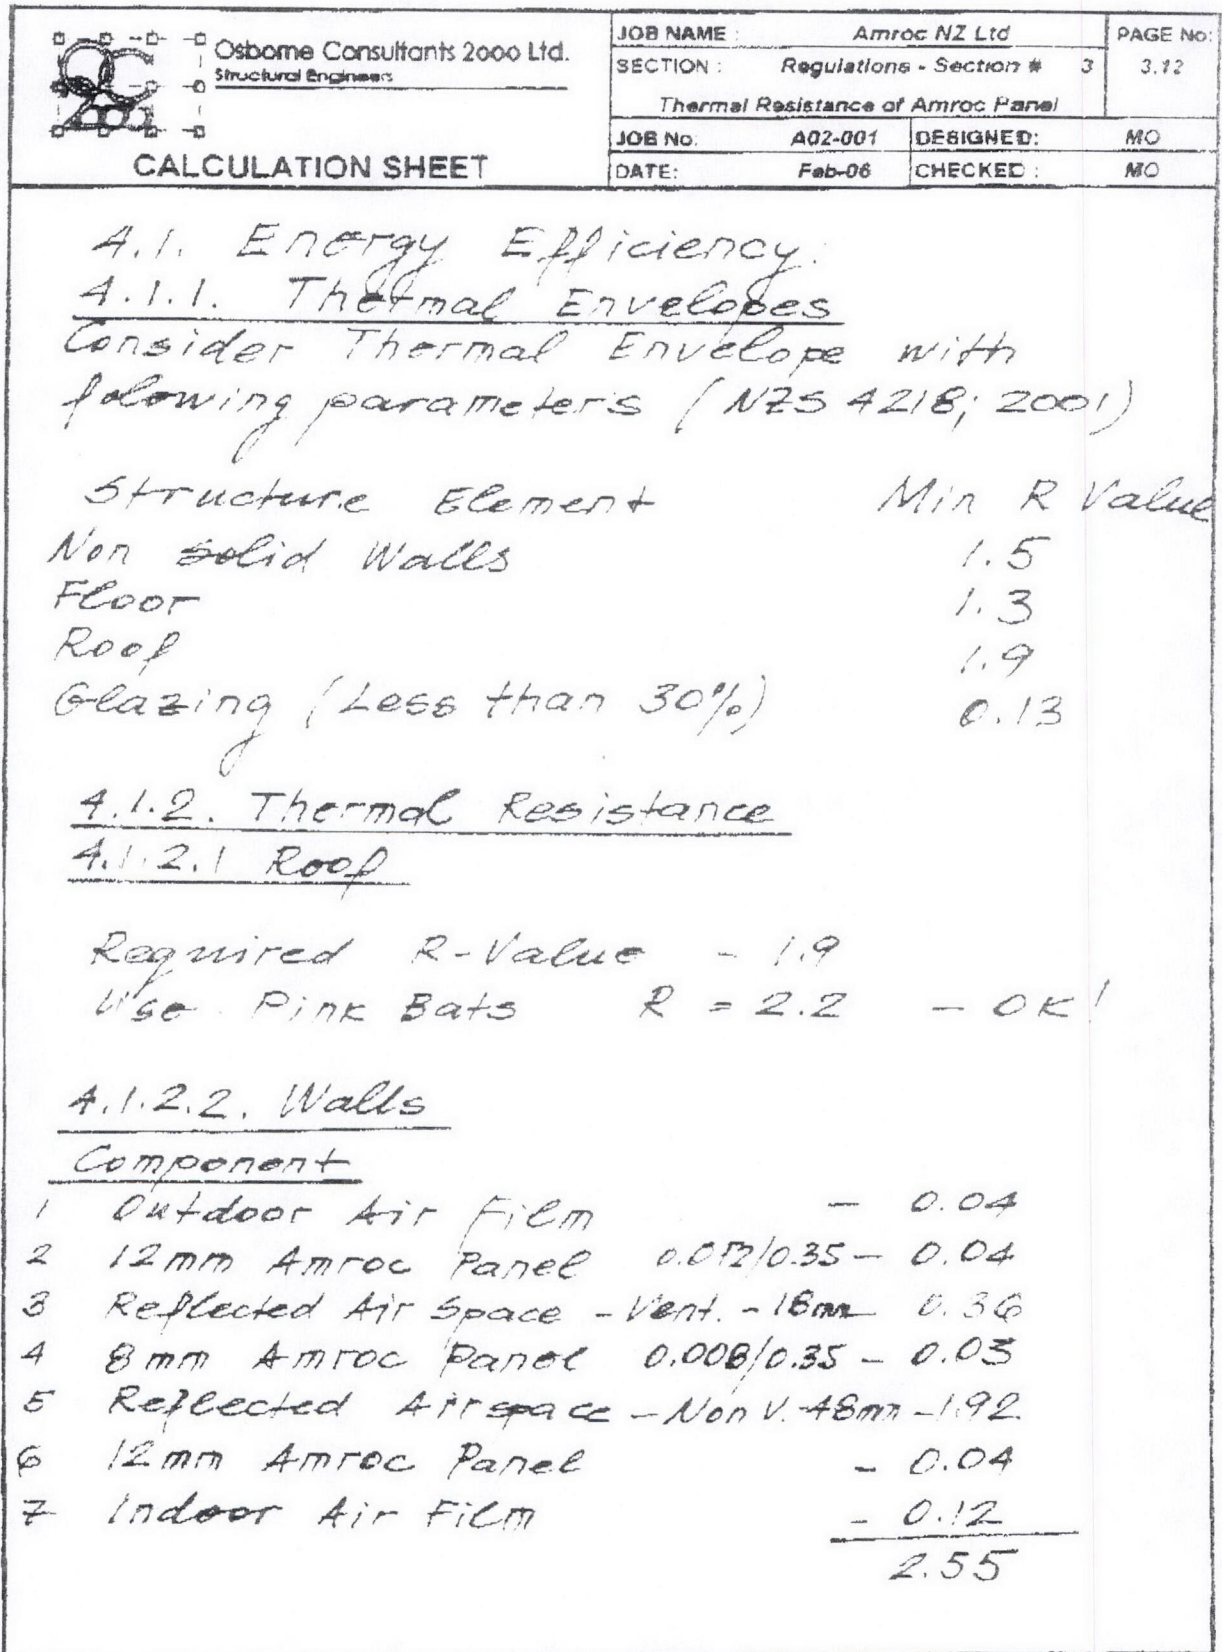 Osborne Consultants 2000 Ltd.
Structural Engineers
CALCULATION SHEET
JOB NAME : Amroc NZ Ltd
PAGE No:
SECTION : Regulations - Section # 3
3.12
Thermal Resistance of Amroc Panel
JOB No: A02-001 DESIGNED: MO
DATE: Feb-06 CHECKED : MO
4.1. Energy Efficiency.
4.1.1. Thermal Envelopes
Consider Thermal Envelope with
folowing parameters (NZS 4218; 2001)
Structure Element Min R Value
Non Solid Walls 1.5
Floor 1.3
Roof 1.9
Glazing (Less than 30%) 0.13
4.1.2. Thermal Resistance
4.1.2.1 Roof
Required R-Value - 1.9
Use Pink Bats R = 2.2 - OK!
4.1.2.2. Walls
Component
1 Outdoor Air Film - 0.04
2 12mm Amroc Panel 0.012/0.35 - 0.04
3 Reflected Air Space - Vent. - 18mm 0.36
4 8mm Amroc Panel 0.008/0.35 - 0.03
5 Reflected Airspace - Non V. - 48mm - 1.92
6 12mm Amroc Panel - 0.04
7 Indoor Air Film - 0.12
2.55